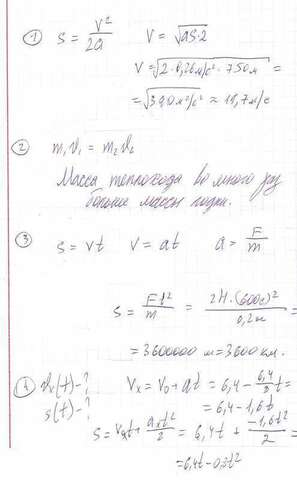 ① S = V²/2a V = √aS·2
V = √2·0,26м/с²·750м =
= √390м²/с² ≈ 19,7м/с
② m₁v₁ = m₂v₂
Масса теплохода во много раз
больше массы лодки.
③ S = vt V = at a = F/m
S = Ft²/m = 2Н·(600с)²/0,2кг =
= 3600000 м = 3600 км.
④ vₓ(t) - ? Vₓ = V₀ + at = 6,4 - 6,4/4 t =
S(t) - ? = 6,4 - 1,6t
S = V₀t + aₓt²/2 = 6,4t + -1,6t²/2 =
= 6,4t - 0,8t²